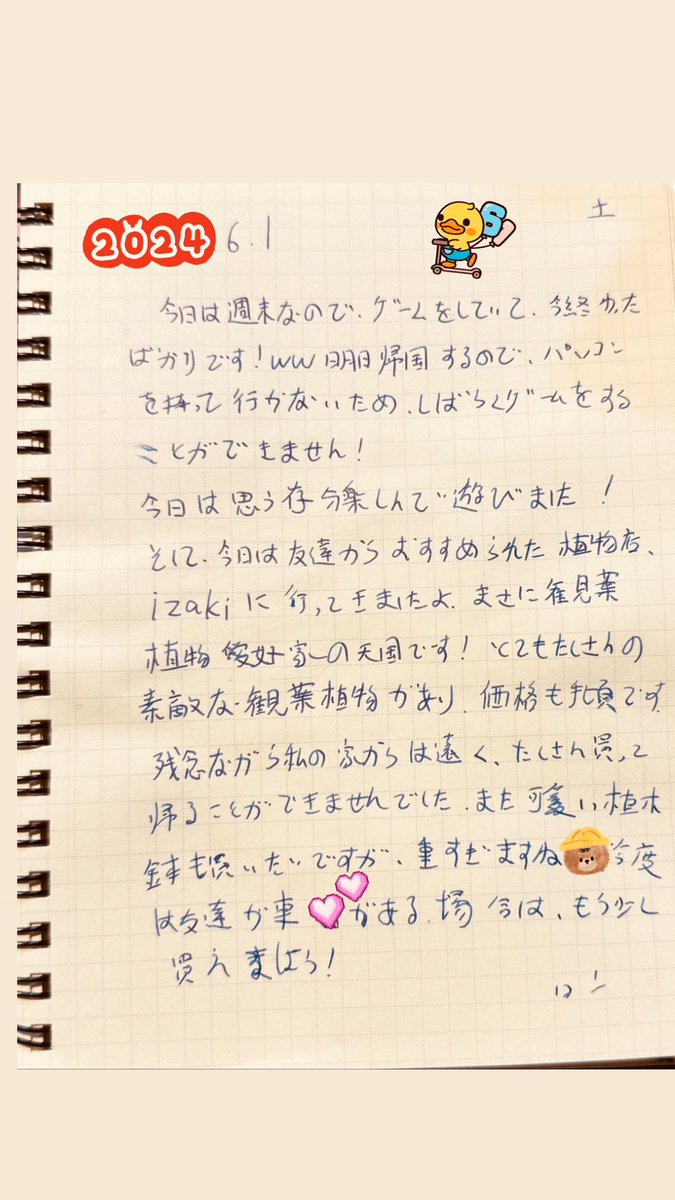 2024 6.1
土
今日は週末なので、ゲームをしていて、今終わった
ばかりです！ww 明日帰国するので、パソコン
を持って行かないため、しばらくゲームをする
ことができません！
今日は思う存分楽しんで遊びました！
そして、今日は友達からおすすめられた植物店、
izakiに行ってきましたよ．まさに観見葉
植物愛好家の天国です！とてもたくさんの
素敵な観葉植物があり、価格も手頃です
残念ながら私の家からは遠く、たくさん買って
帰ることができませんでした．また可愛い植木
鉢も買いたいですが、重すぎますね 今度
は友達が車 がある、場合は、もう少し
買えましょう！